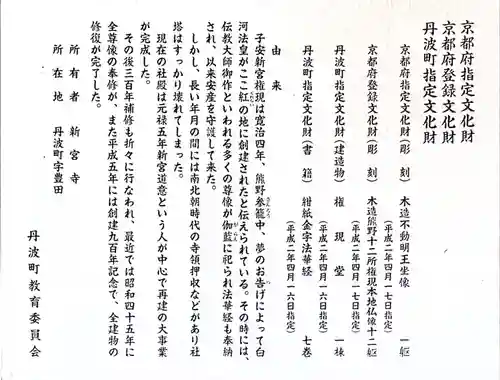 京都府指定文化財
京都府登録文化財
丹波町指定文化財
京都府指定文化財(彫 刻) 木造不動明王坐像 一躯
(平成二年四月一七日指定)
京都府登録文化財(彫 刻) 木造熊野十二所権現本地仏像十二躯
(平成二年四月一七日指定)
丹波町指定文化財(建造物) 権現堂 一棟
(平成二年四月一六日指定)
丹波町指定文化財(書 籍) 紺紙金字法華経 七巻
(平成二年四月一六日指定)
由来
子安新宮権現は寛治四年、熊野参籠中、夢のお告げによって白
河法皇がここ紅の地に創建されたと伝えられている。その時には、
伝教大師御作といわれる多くの尊像が伽藍に祀られ法華経も奉納
され、以来安産を守護して来た。
しかし、長い年月の間には南北朝時代の寺領押収などがあり社
塔はすっかり壊れてしまった。
現在の社殿は元禄五年新宮道意という人が中心で再建の大事業
が完成した。
その後三百年補修も折々に行なわれ、最近では昭和四十五年に
全尊像の奉修が、また平成五年には創建九百年記念で、全建物の
修復が完了した。
所有者 新宮寺
所在地 丹波町字豊田
丹波町教育委員会